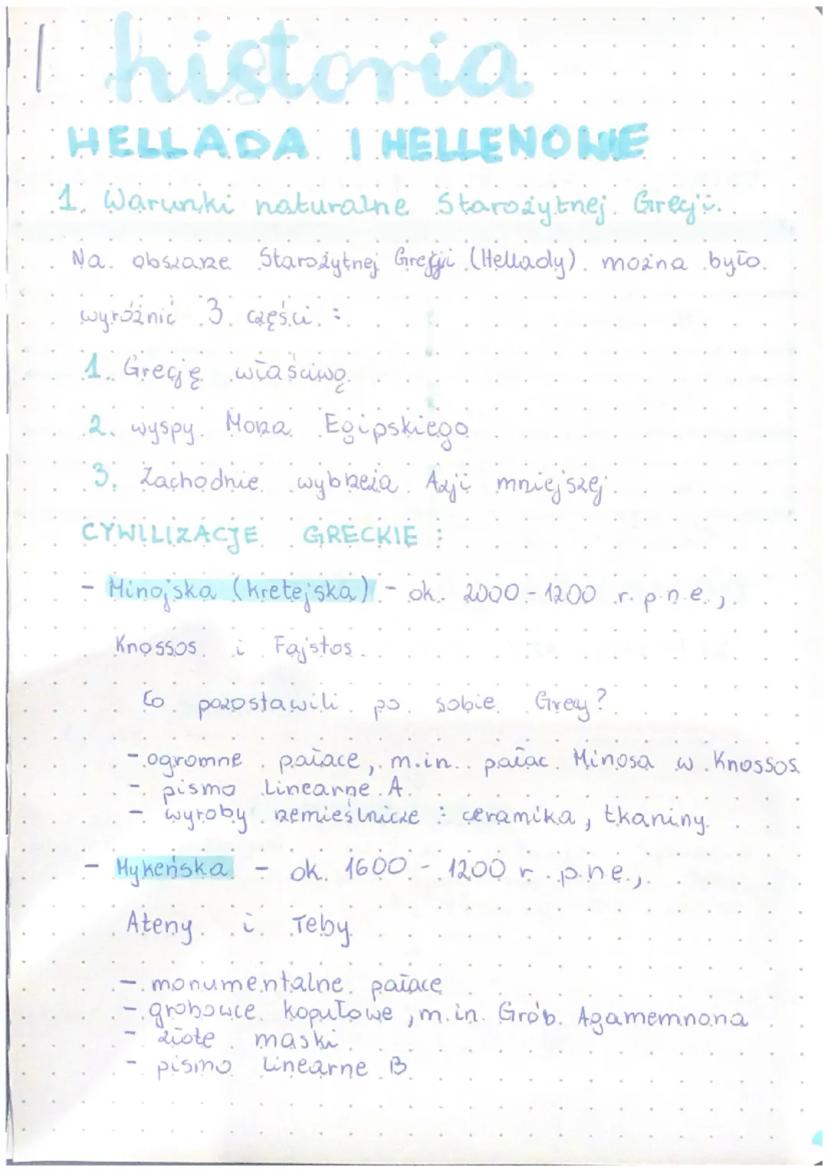 historia
HELLADA I HELLENOWIE
1. Warunki naturalne Starożytnej Grecji.
Na obszarze Starożytnej Grecji (Hellady) można było
wyróżnić 3 części :
1. Grecję właściwą
2. wyspy Morza Egipskiego
3. Zachodnie wybrzeża Azji mniejszej
CYWILIZACJE GRECKIE :
- Minojska (kretejska) - ok. 2000 - 1200 r. p.n.e.,
Knossos i Fajstos
Co pozostawili po sobie Grecy?
- ogromne pałace, m.in. pałac Minosa w Knossos
- pismo Linearne A
- wyroby rzemieślnicze : ceramika, tkaniny
- Mykeńska - ok. 1600 - 1200 r. p.n.e.,
Ateny i Teby
- monumentalne pałace
- grobowce kopułowe, m.in. Grób Agamemnona
- złote maski
- pismo Linearne B